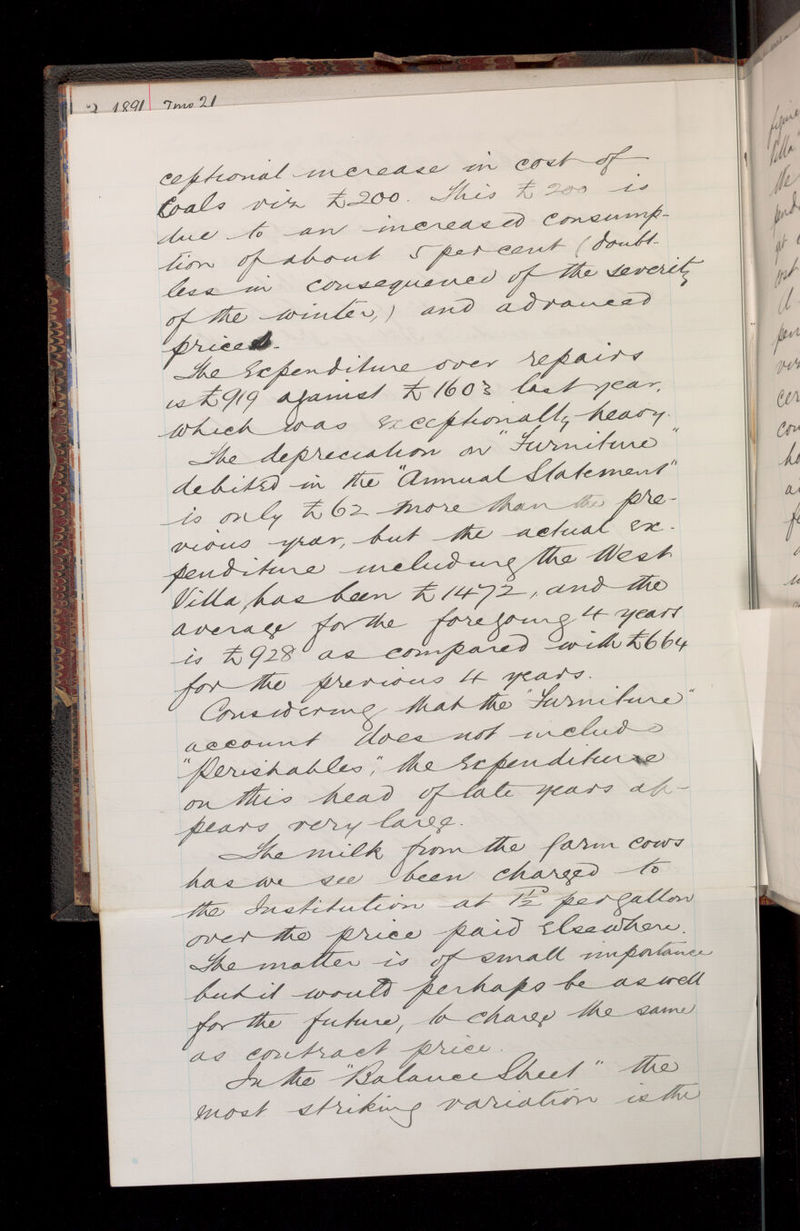 1891 7mo 21
ceptional increase in cost of
Coals viz £200. This £200 is
due to an increased consump-
tion of about 5 per cent (doubt-
less in consequence of the severity
of the winter,) and advanced
prices.
The Expenditure over repairs
is £919 against £1603 last year,
which was exceptionally heavy.
The depreciation on "Furniture"
debited in the "Annual Statement"
is only £62 more than the pre-
vious year, but the actual ex-
penditure including the West
Villa, has been £1472, and the
average for the foregoing 4 years
is £928 as compared with £664
for the previous 4 years.
Considering that the "Furniture"
account does not include
"Perishables", the Expenditure
on this head of late years ap-
pears very large.
The milk from the farm cows
has we see been charged to
the Institution at 1½D per gallon
over the price paid elsewhere.
The matter is of small importance
but it would perhaps be as well
for the future, to charge the same
as contract price.
In the "Balance Sheet" the
most striking variation is the